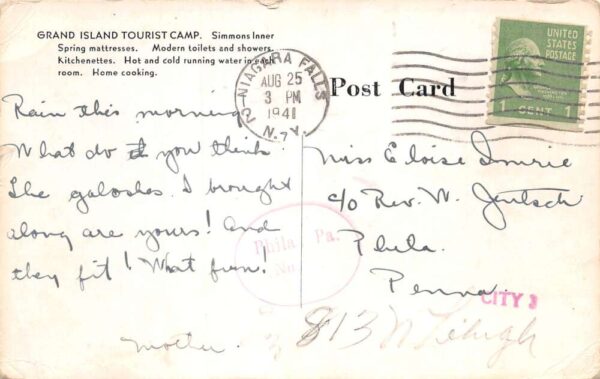 GRAND ISLAND TOURIST CAMP. Simmons Inner
Spring mattresses. Modern toilets and showers.
Kitchenettes. Hot and cold running water in each
room. Home cooking.
Rain this morning
What do you think
The galoshes I brought
along are yours! And
they fit! What fun!
Mother.
NIAGARA FALLS
AUG 25
3 PM
1941
N.Y.
Post Card
UNITED
STATES
POSTAGE
1 CENT 1
Miss Eloise Imrie
c/o Rev. W.
Phila.
Penna.
Phila. Pa.
CITY
813 N Lehigh